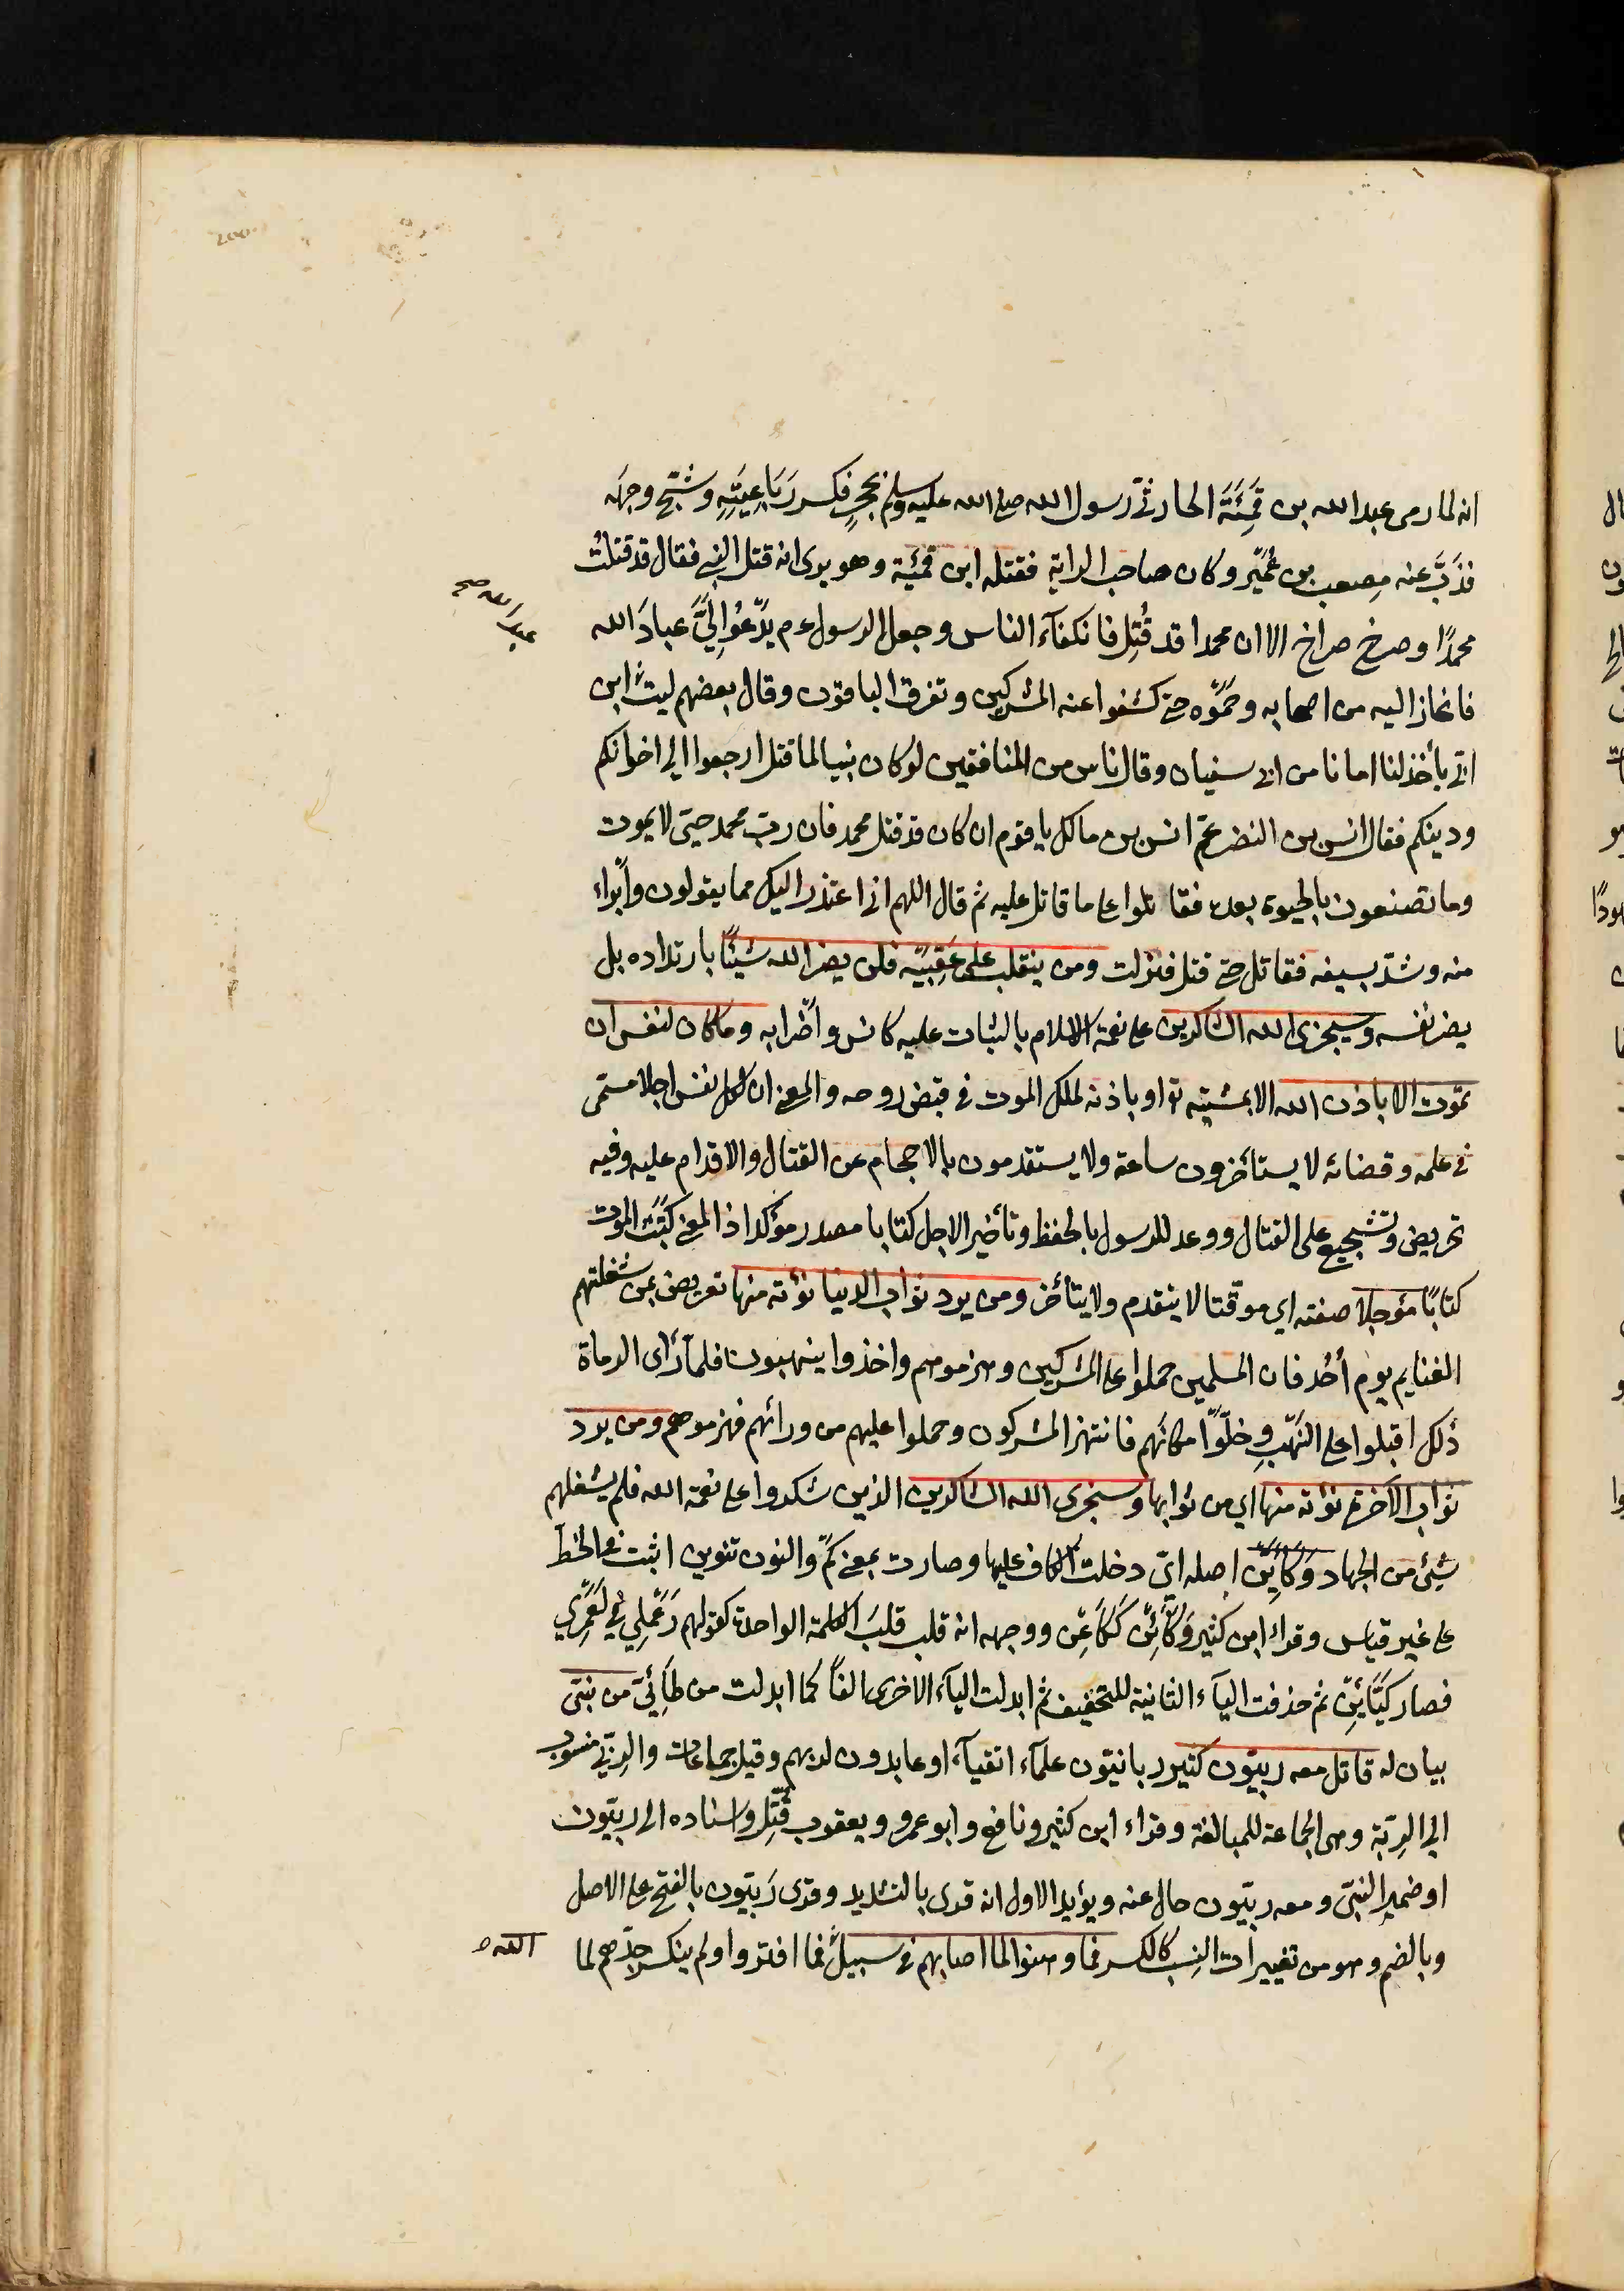 انه لما رمى عبد الله بن قَمِئَةَ الحارثي رسول الله صلى الله عليه وسلم بحجرٍ فكسر رَبَاعِيَتِهِ وشجّ وجهه
فذَبَّ عنه مِصعب بن عُمَيْر وكان صاحب الراية فقتله ابن قمئة وهو يرى انه قتل النبي فقال قد قتلتُ
محمدًا وصرخ صراخ الا ان محمدا قد قُتِل فانكفأ الناس وجعل الرسول ءم يَدْعُو اِلَيَّ عبادَ الله
عبد الله صح
فانحاز اليه من اصحابه وحَمَوْه حتى كشفوا عنه المشركين وتفرق الباقون وقال بعضهم ليت ابن
ابي يأخذ لنا امانا من ابي سفيان وقال ناس من المنافقين لو كان نبيا لما قتل ارجعوا الى اخوانكم
ودينكم فقال انس بن النضر عمّ انس بن مالك يا قوم ان كان قد قتل محمد فان ربّ محمد حيّ لا يموت
وما تصنعون بالحيوة بعده فقاتلوا على ما قاتل عليه ثم قال اللهم اني اعتذر اليك مما يقولون وأبراء
منه وشدّ بسيفه فقاتل حتى قتل فنزلت ومن ينقلب على عَقِبَيْه فلن يضر الله شَيْئًا بارتداده بل
يضر نفسه وسيجزى الله الشاكرين على نعمة الاسلام بالثبات عليه كانس واضْرابه وما كان لنفس ان
تموت الا باذن الله الا بمشيته تع او باذنه لملك الموت في قبض روحه والمعنى ان لكل نفس اجلا مسمى
في علمه وقضائه لا يستأخرون ساعة ولا يستقدمون بالاحجام عن القتال والاقدام عليه وفيه
تحريض وتشجيع على القتال ووعد للرسول بالحفظ وتأخير الاجل كتابا مصدر مؤكد اذ المعنى كُتِبَ الموت
كتابًا مؤجلا صفته اي موقتا لا يتقدم ولا يتأخر ومن يرد ثواب الدنيا نؤته منها تعريض بمن شغلتهم
الغنايم يوم أُحُد فان المسلمين حملوا على المشركين وهزموهم واخذوا ينهبون فلما رأى الرماة
ذلك اقبلوا على النَهْبِ وخلّوا مكانهم فانتهز المشركون وحملوا عليهم من ورائهم فهزموهم ومن يرد
ثواب الآخرة نؤته منها اي من ثوابها وسنجزى الله الشاكرين الذين شكروا على نعمة الله فلم يشغلهم
شيئ من الجهاد وَكَأيِّن اصله ايّ دخلت الكاف عليها وصارت بمعنى كمْ والنون تنوين اثبت في الخط
على غير قياس وقراء ابن كثير وَكَائِنْ كَكَاعِنْ ووجهه انه قلب قلبَ الكلمة الواحدة كقولهم رَعَمْلِي في لَعَمْرِي
فصار كَيَّائِنْ ثم حذفت الياء الثانية للتخفيف ثم ابدلت الياء الاخرى الفاً كما ابدلت من طَائِيّ من نبيّ
بيان له قاتل معه ربيّون كثير ربانيّون علمآء اتقيآء او عابدون لربهم وقيل جماعات والرِبّي منسوب
الى الرِبّة وهى الجماعة للمبالغة وقراء ابن كثير ونافع وابو عمرو ويعقوب قُتِل واسناده الى ربيّون
او ضمير النبيّ ومعه ربيّون حال عنه ويؤيد الاول انه قرى بالتشديد وقرى رَبيّون بالفتح على الاصل
وبالضم وهو من تغييرات النسب كالكسر فما وهنوا لما اصابهم في سبيل فما افتروا ولم ينكسر جدّهم لما
الله